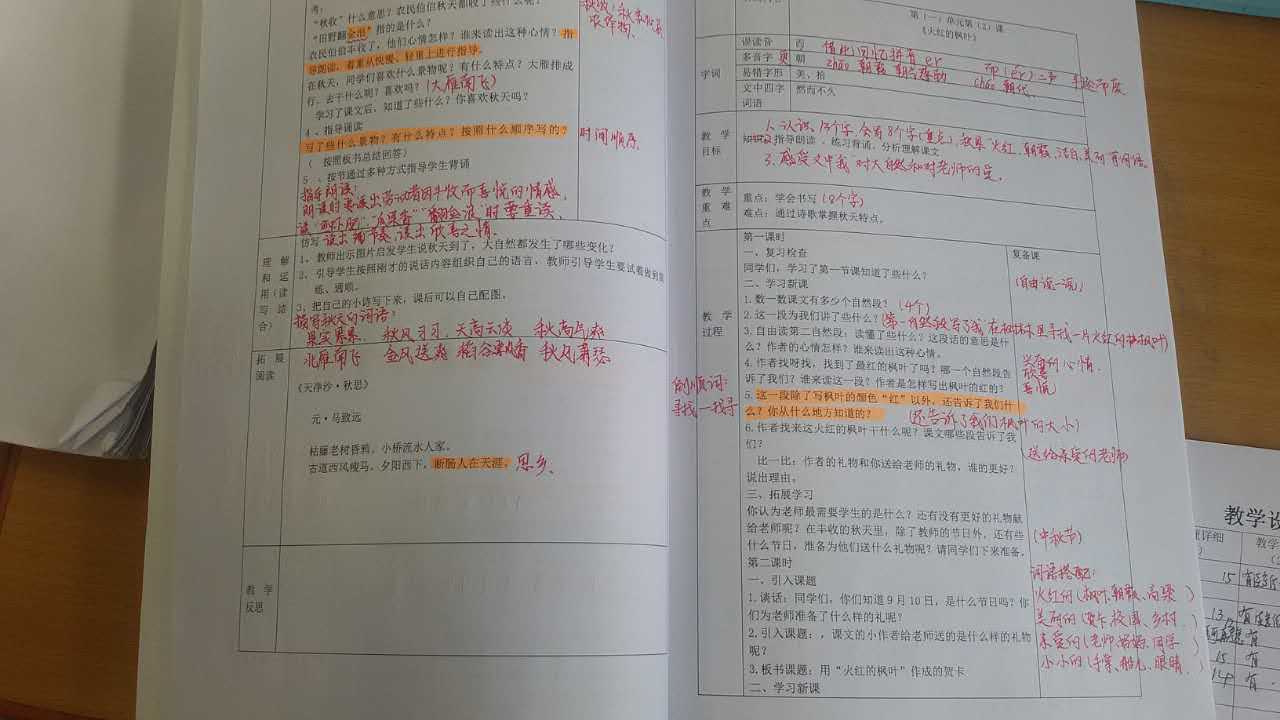 考：
“秋收”什么意思？农民伯伯秋天都收了些什么呢？
“田野翻金浪”指的是什么？
农民伯伯丰收了，他们心情怎样？谁来读出这种心情？指
导朗读，着重从快慢、轻重上进行指导。
在秋天，同学们喜欢什么景物呢？有什么特点？大雁排成
行，去干什么呢？喜欢吗？(大雁南飞)
学习了课文后，知道了些什么？你喜欢秋天吗？
4、指导诵读
写了些什么景物？有什么特点？按照什么顺序写的？
时间顺序
（按照板书总结回答）
5、按节通过多种方式指导学生背诵
指导朗读：
朗读时要读出劳动者因丰收而喜悦的情感，
时要重读、
读出节奏、读出欣喜之情.
理解和运用（读写结合）
仿写
1、教师出示图片启发学生说秋天到了，大自然都发生了哪些变化？
2、引导学生按照刚才的说话内容组织自己的语言，教师引导学生要试着做到简
练、通顺。
3、把自己的小诗写下来，课后可以自己配图。
描写秋天的词语：
果实累累、秋风习习、天高云淡 秋高气爽
拓展阅读
北雁南飞 金风送爽 稻谷飘香 秋风萧瑟
《天净沙·秋思》
元·马致远
枯藤老树昏鸦，小桥流水人家。
古道西风瘦马。夕阳西下，断肠人在天涯。思乡.
教学反思
第（一）单元第（2）课
《火红的枫叶》
字词
误读音 而
多音字 朝 zhāo 朝霞 cháo 朝代
易错字形 美、拾
文中四字词语 然而不久
教学目标
1.认识13个字,会写8个字(重点),
知识2指导朗读、练习背诵，分析理解课文
3.感受文中"我"对大自然和对老师的爱.
教学重难点
重点：学会书写(8个字)
难点：通过诗歌掌握秋天特点。
教学过程
第一课时
复备课
一、复习检查
同学们，学习了第一节课知道了些什么？
(自由说一说)
二、学习新课
1.数一数课文有多少个自然段？(4个)
2.这一段为我们讲了些什么？(第一自然段写了我在树林里寻找一片火红的枫叶)
3.自由读第二自然段：读懂了些什么？这段话的意思是什
么？作者的心情怎样？谁来读出这种心情。
兴奋的心情.
欣喜
喜悦
4.作者找呀找，找到了最红的枫叶了吗？哪一个自然段告
诉了我们？谁来读这一段？作者是怎样写出枫叶的红的？
例顺词：
寻找—找寻
5.这一段除了写枫叶的颜色“红”以外，还告诉了我们什
么？你从什么地方知道的？(还告诉了我们枫叶的大小)
6.作者找来这火红的枫叶干什么呢？课文哪些段告诉了我
们？
(送给亲爱的老师)
比一比：作者的礼物和你送给老师的礼物，谁的更好？
说出理由。
三、拓展学习
你认为老师最需要学生的是什么？还有没有更好的礼物献
给老师呢？在丰收的秋天里，除了教师的节日外，还有些
什么节日，准备为他们送什么礼物呢？请同学们下来准备。
(中秋节)
第二课时
一、引入课题
1.谈话：同学们，你们知道9月10日，是什么节日吗？你
们为老师准备了什么样的礼呢？
2.引入课题：，课文的小作者给老师送的是什么样的礼物
呢？
3.板书课题：用“火红的枫叶”作成的贺卡
二、学习新课
词语搭配：
火红的(枫叶、朝霞、高粱)
美丽的(贺卡、校园、乡村)
亲爱的(老师、妈妈、同学)
小小的(手掌、船儿、眼睛)